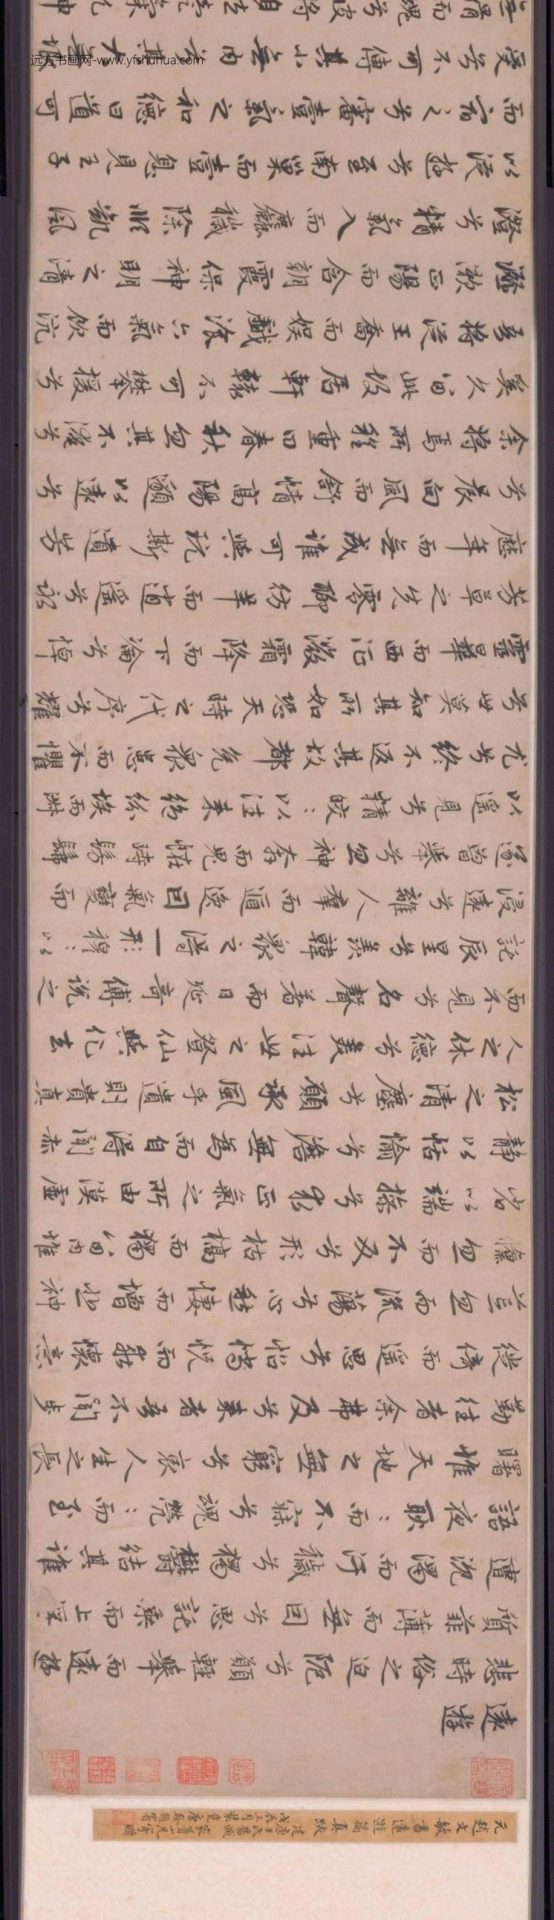 元趙文敏書遠遊篇真跡
遠遊
悲時俗之迫阨兮願輕舉而遠遊
質菲薄而無因兮思託乘而上浮
遭沈濁而汙穢兮獨鬱結其誰
語夜耿:而不寐兮魂煢:而至
曙惟天地之無窮兮哀人生之長
勤往者余弗及兮來者吾不聞步
徙倚而遙思兮怊惝怳而乖懷意
荒忽而流蕩兮心愁悽而增悲神
儵忽而不反兮形枯槁而獨留內惟
省以端操兮求正氣之所由漠虛
靜以恬愉兮澹無為而自得聞赤
松之清塵兮願承風乎遺則貴真
人之休德兮美往世之登仙與化去
而不見兮名聲著而日延奇傅說之
託辰星兮羨韓眾之得一形穆:以
浸遠兮離人群而遁逸因氣變而
遂曾舉兮忽神奔而鬼怪時髣髴
以遙見兮精皎:以往來絕氛埃而淑
尤兮終不返其故都免眾患而不懼
兮世莫知其所如恐天時之代序兮耀
靈曄而西征微霜降而下淪兮悼
芳草之先零聊彷徉而逍遙兮永
歷年而無成誰可與玩斯遺芳
兮晨向風而舒情高陽邈以遠兮
余將焉所程重曰春秋忽其不淹兮
奚久留此故居軒轅不可攀援兮
吾將從王喬而娛戲飡六氣而飲沆
瀣兮漱正陽而含朝霞保神明之清
澄兮精氣入而麤穢除順凱風
以從遊兮至南巢而壹息見王子
而宿之兮審壹氣之和德曰道可
受兮不可傳其小無內兮其大無垠
無滑而魂兮彼將自
远方书画网-www.yfshuhua.com